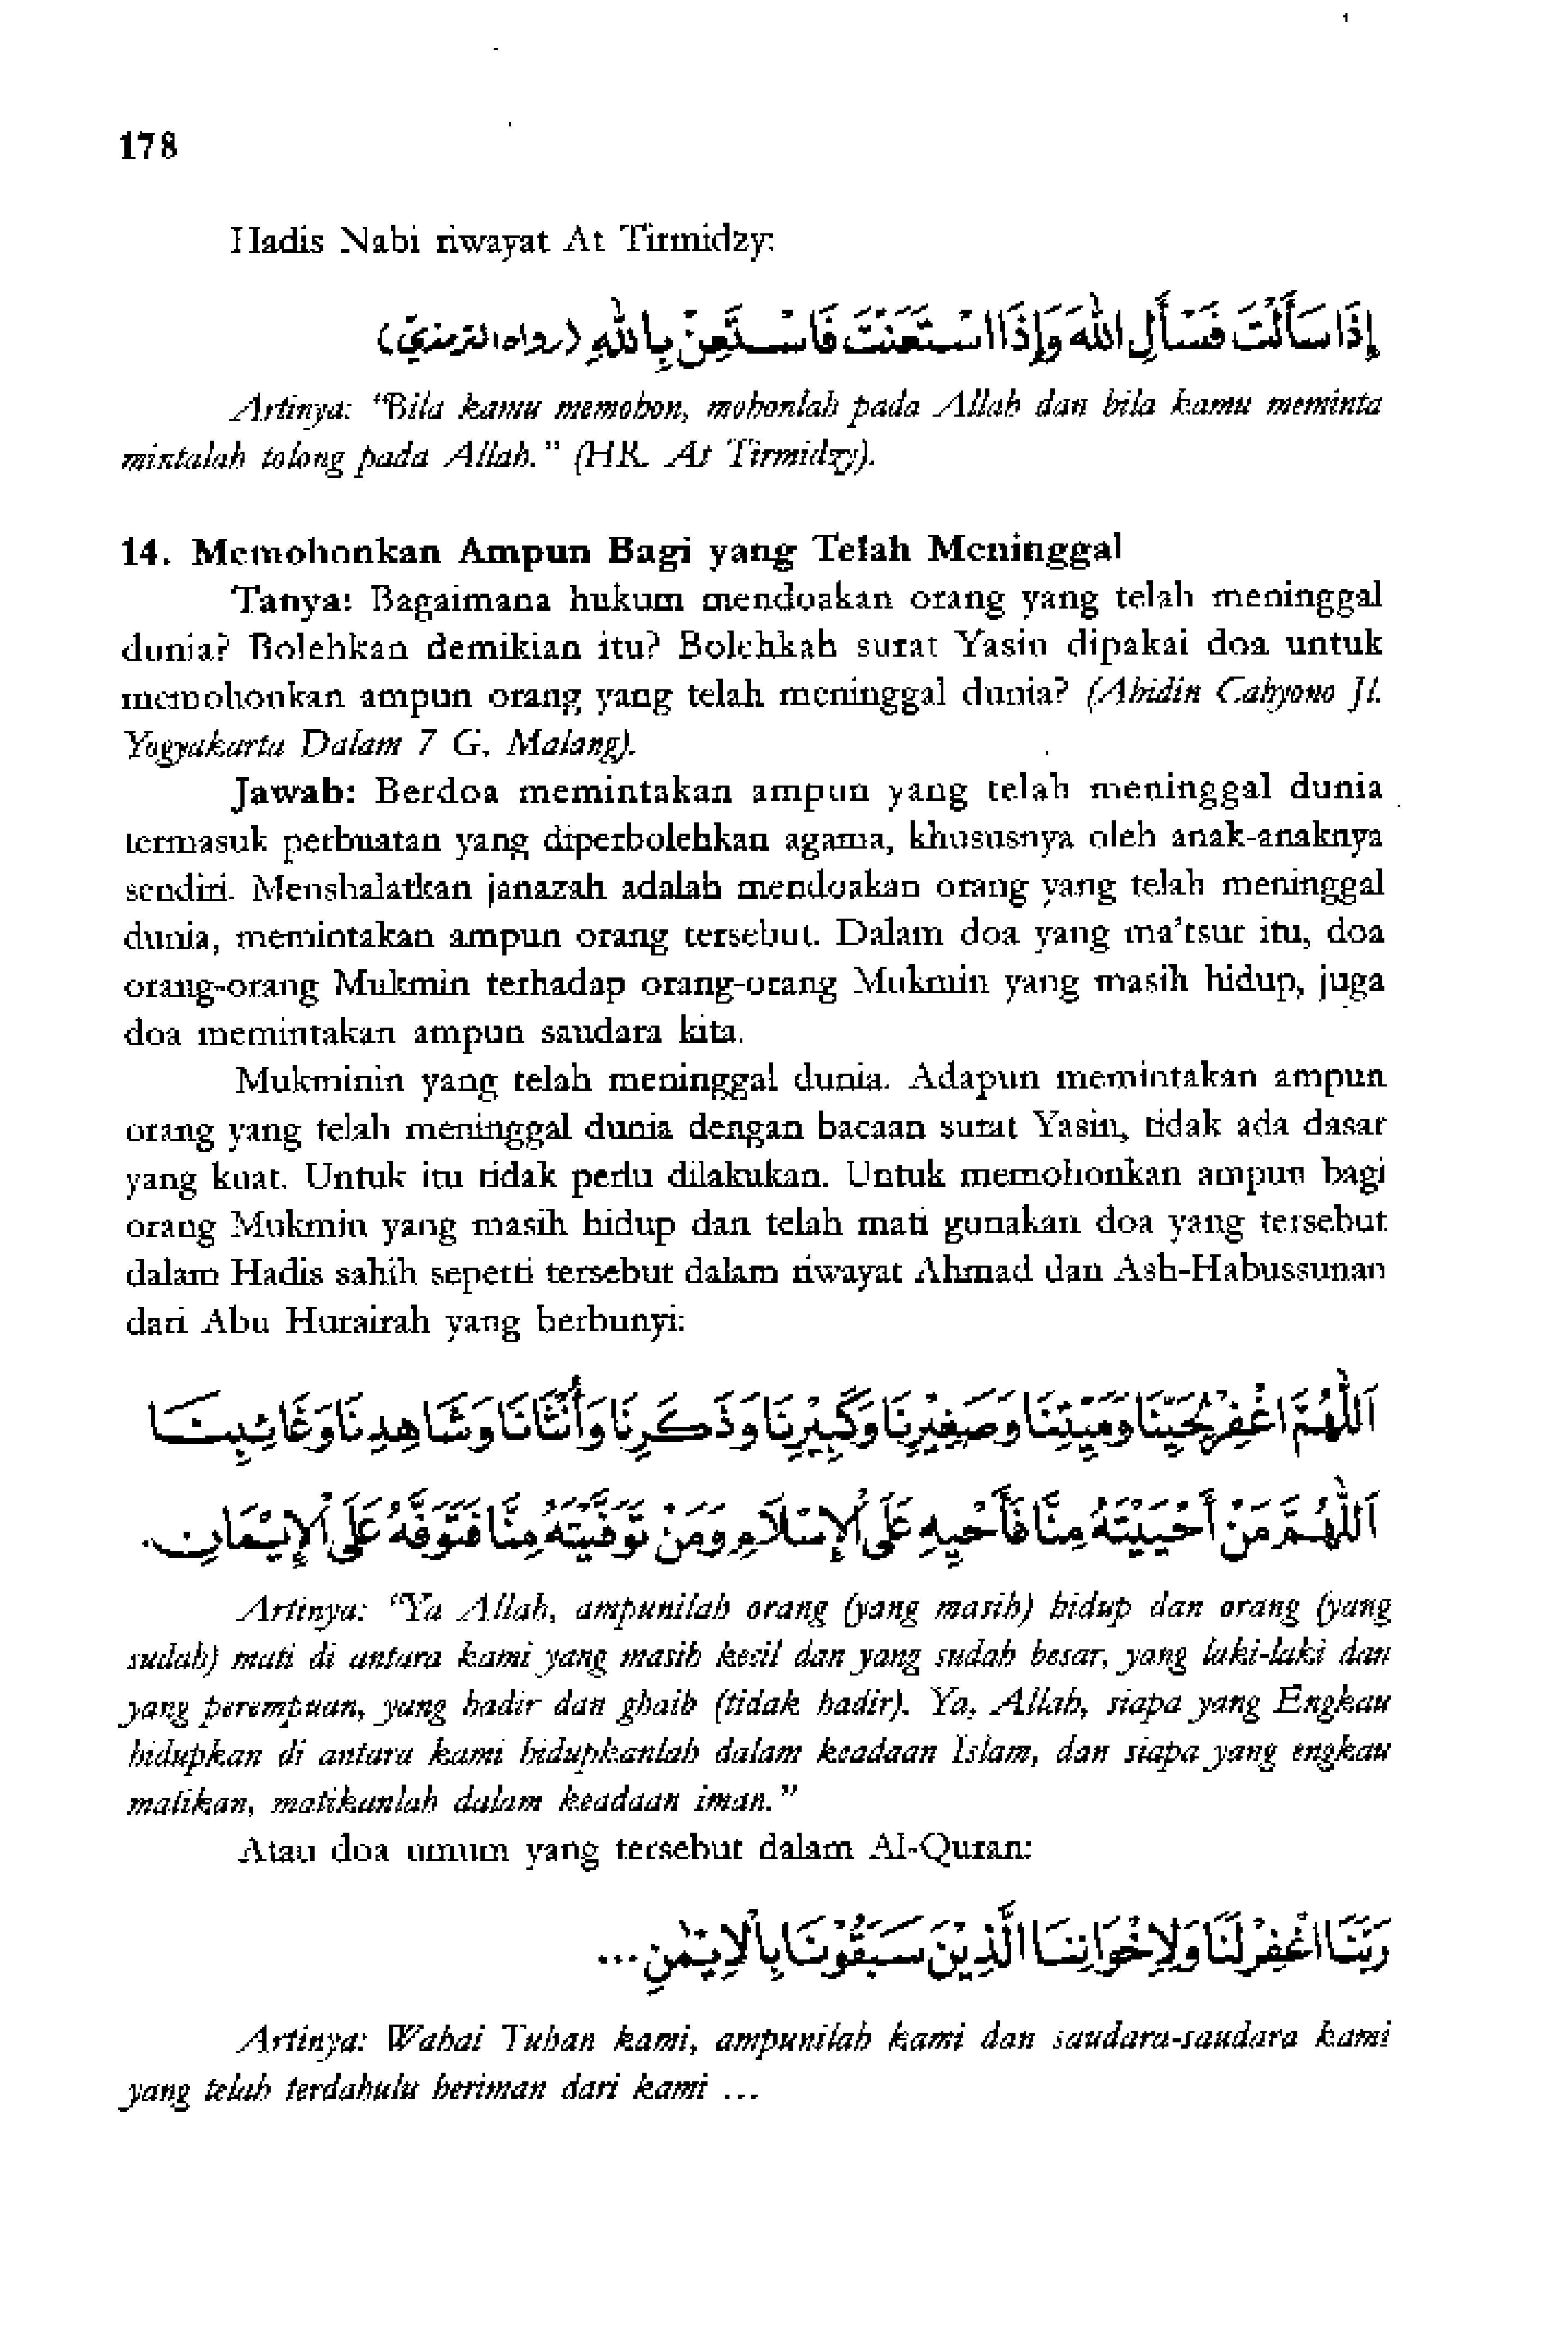 178
Hadis Nabi riwayat At Tirmidzy:
إِذَا سَأَلْتَ فَسْأَلِ اللهَ وَإِذَا اسْتَعَنْتَ فَاسْتَعِنْ بِاللهِ (رواه الترمذيّ)
Artinya: “Bila kamu memohon, mohonlah pada Allah dan bila kamu meminta
mintalah tolong pada Allah.” (HR. At Tirmidzy).
14. Memohonkan Ampun Bagi yang Telah Meninggal
Tanya: Bagaimana hukum mendoakan orang yang telah meninggal
dunia? Bolehkan demikian itu? Bolehkah surat Yasin dipakai doa untuk
memohonkan ampun orang yang telah meninggal dunia? (Abidin Cahyono Jl.
Yogyakarta Dalam 7 G, Malang).
Jawab: Berdoa memintakan ampun yang telah meninggal dunia
termasuk perbuatan yang diperbolehkan agama, khususnya oleh anak-anaknya
sendiri. Menshalatkan janazah adalah mendoakan orang yang telah meninggal
dunia, memintakan ampun orang tersebut. Dalam doa yang ma’tsur itu, doa
orang-orang Mukmin terhadap orang-orang Mukmin yang masih hidup, juga
doa memintakan ampun saudara kita.
Mukminin yang telah meninggal dunia. Adapun memintakan ampun
orang yang telah meninggal dunia dengan bacaan surat Yasin, tidak ada dasar
yang kuat. Untuk itu tidak perlu dilakukan. Untuk memohonkan ampun bagi
orang Mukmin yang masih hidup dan telah mati gunakan doa yang tersebut
dalam Hadis sahih seperti tersebut dalam riwayat Ahmad dan Ash-Habussunan
dari Abu Hurairah yang berbunyi:
اَللّٰهُمَّ اغْفِرْ لِحَيِّنَا وَمَيِّتِنَا وَصَغِيْرِنَا وَكَبِيْرِنَا وَذَكَرِنَا وَأُنْثَانَا وَشَاهِدِنَا وَغَائِبِنَا
اَللّٰهُمَّ مَنْ أَحْيَيْتَهُ مِنَّا فَأَحْيِهِ عَلَى اْلإِسْلَامِ وَمَنْ تَوَفَّيْتَهُ مِنَّا فَتَوَفَّهُ عَلَى اْلإِيْمَانِ.
Artinya: “Ya Allah, ampunilah orang (yang masih) hidup dan orang (yang
sudah) mati di antara kami yang masih kecil dan yang sudah besar, yang laki-laki dan
yang perempuan, yang hadir dan ghaib (tidak hadir). Ya, Allah, siapa yang Engkau
hidupkan di antara kami hidupkanlah dalam keadaan Islam, dan siapa yang engkau
matikan, matikanlah dalam keadaan iman.”
Atau doa umum yang tersebut dalam Al-Quran:
رَبَّنَا اغْفِرْ لَنَا وَلِإِخْوَانِنَا الَّذِيْنَ سَبَقُوْنَا بِاْلاِيْمٰنِ ...
Artinya: Wahai Tuhan kami, ampunilah kami dan saudara-saudara kami
yang telah terdahulu beriman dari kami ...